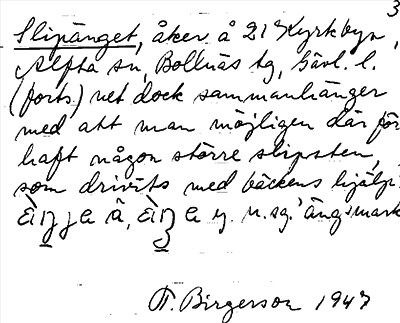 3
Slipänget, åker å 21 Kyrkbyn,
Alfta sn, Bollnäs tg, Gävl. l.
(forts.) vet dock sammanhänger
med att man möjligen där för
haft någon större slipsten,
som drivits med bäckens hjälp.
y. n. sg. 'ängsmark
T. Birgerson 1947